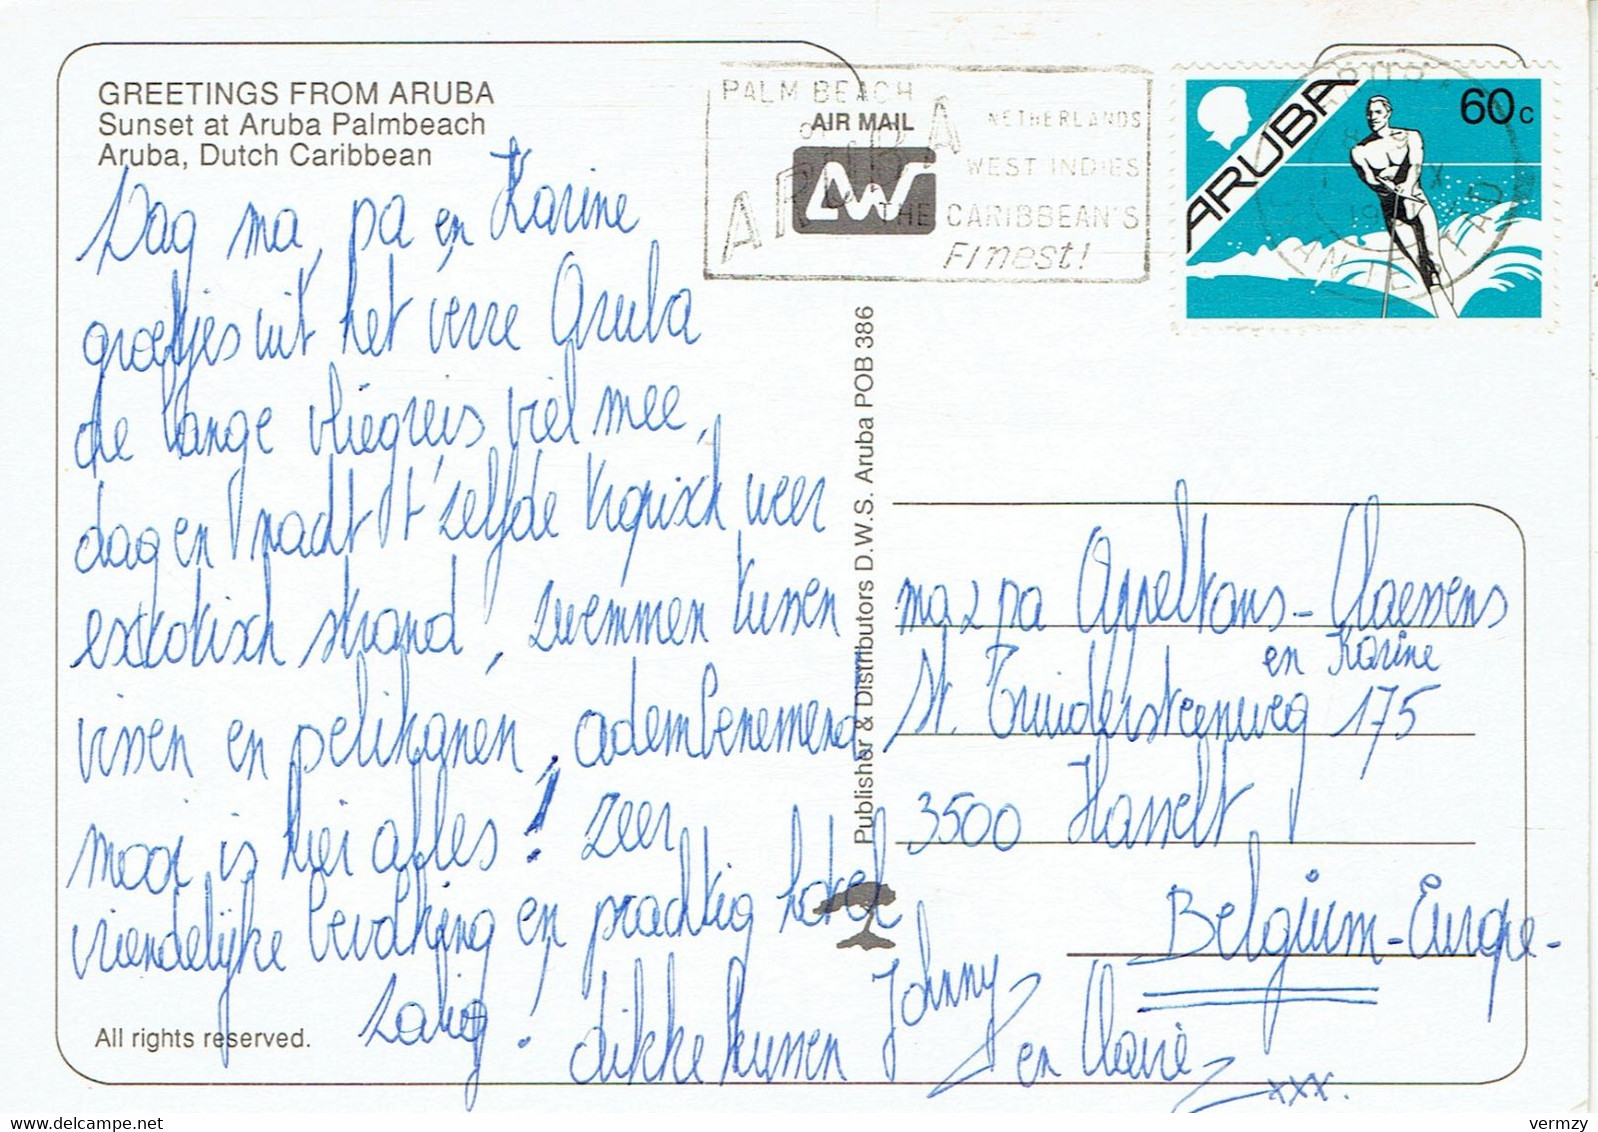 GREETINGS FROM ARUBA
Sunset at Aruba Palmbeach
Aruba, Dutch Caribbean
Dag ma, pa en Karine
groetjes uit het verre Aruba
de lange vliegreis viel mee,
dag en nacht 't zelfde tropisch weer
exotisch strand, zwemmen tussen
vissen en pelikanen, adembenemend
mooi is hier alles! zeer
vriendelijke bevolking en prachtig hotel
zalig! dikke kussen Johnny
en Claire
xxx.
All rights reserved.
PALM BEACH
ARUBA
NETHERLANDS
WEST INDIES
THE CARIBBEAN'S
Finest!
AIR MAIL
Publisher & Distributors D.W.S. Aruba POB 386
ARUBA
60c
ma & pa Appeltans-Claessens
en Karine
St. Truidersteenweg 175
3500 Hasselt
Belgium-Europe-
vermzy